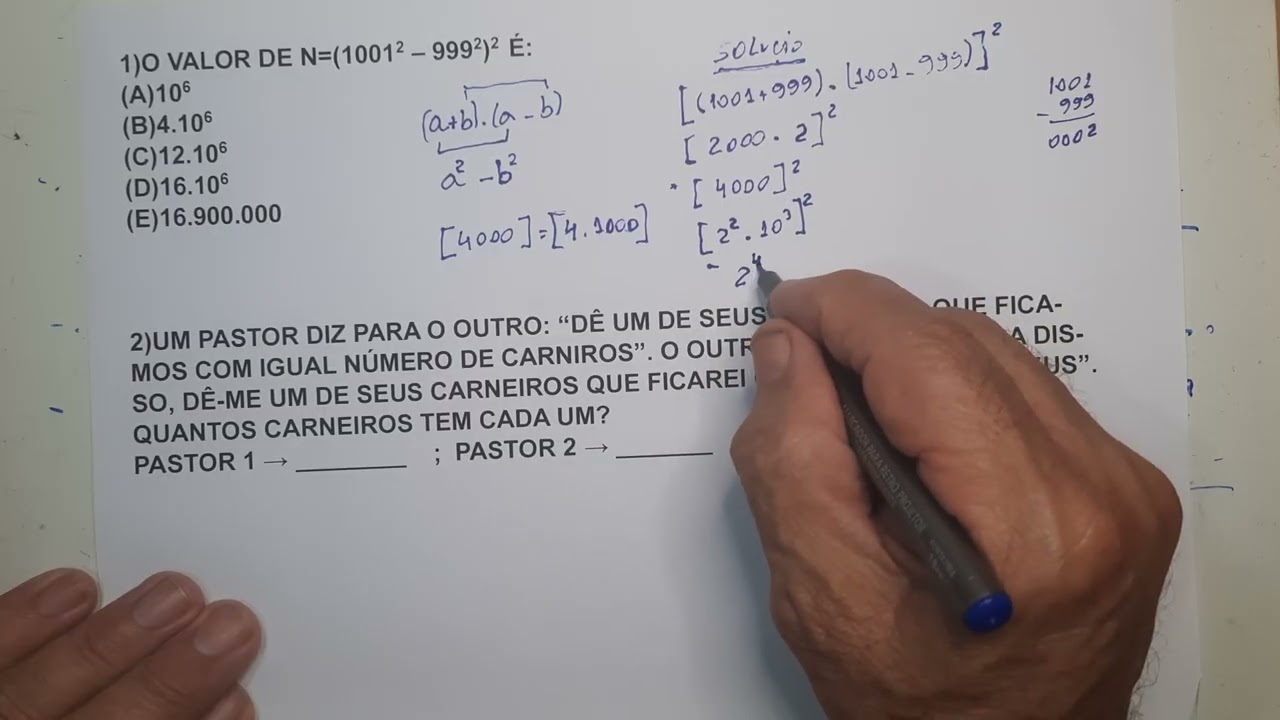 1)O VALOR DE N=(1001² – 999²)² É:
(A)10⁶
(B)4.10⁶
(C)12.10⁶
(D)16.10⁶
(E)16.900.000
(a+b).(a-b)
a² - b²
[4000]=[4.1000]
SOLUCÃO
[(1001+999).(1001-999)]²
[2000.2]²
[4000]²
[2².10³]²
2⁴
1001
- 999
0002
2)UM PASTOR DIZ PARA O OUTRO: “DÊ UM DE SEUS QUE FICA-
MOS COM IGUAL NÚMERO DE CARNIROS”. O OUTR A DIS-
SO, DÊ-ME UM DE SEUS CARNEIROS QUE FICAREI US”.
QUANTOS CARNEIROS TEM CADA UM?
PASTOR 1 → ________ ; PASTOR 2 → _______